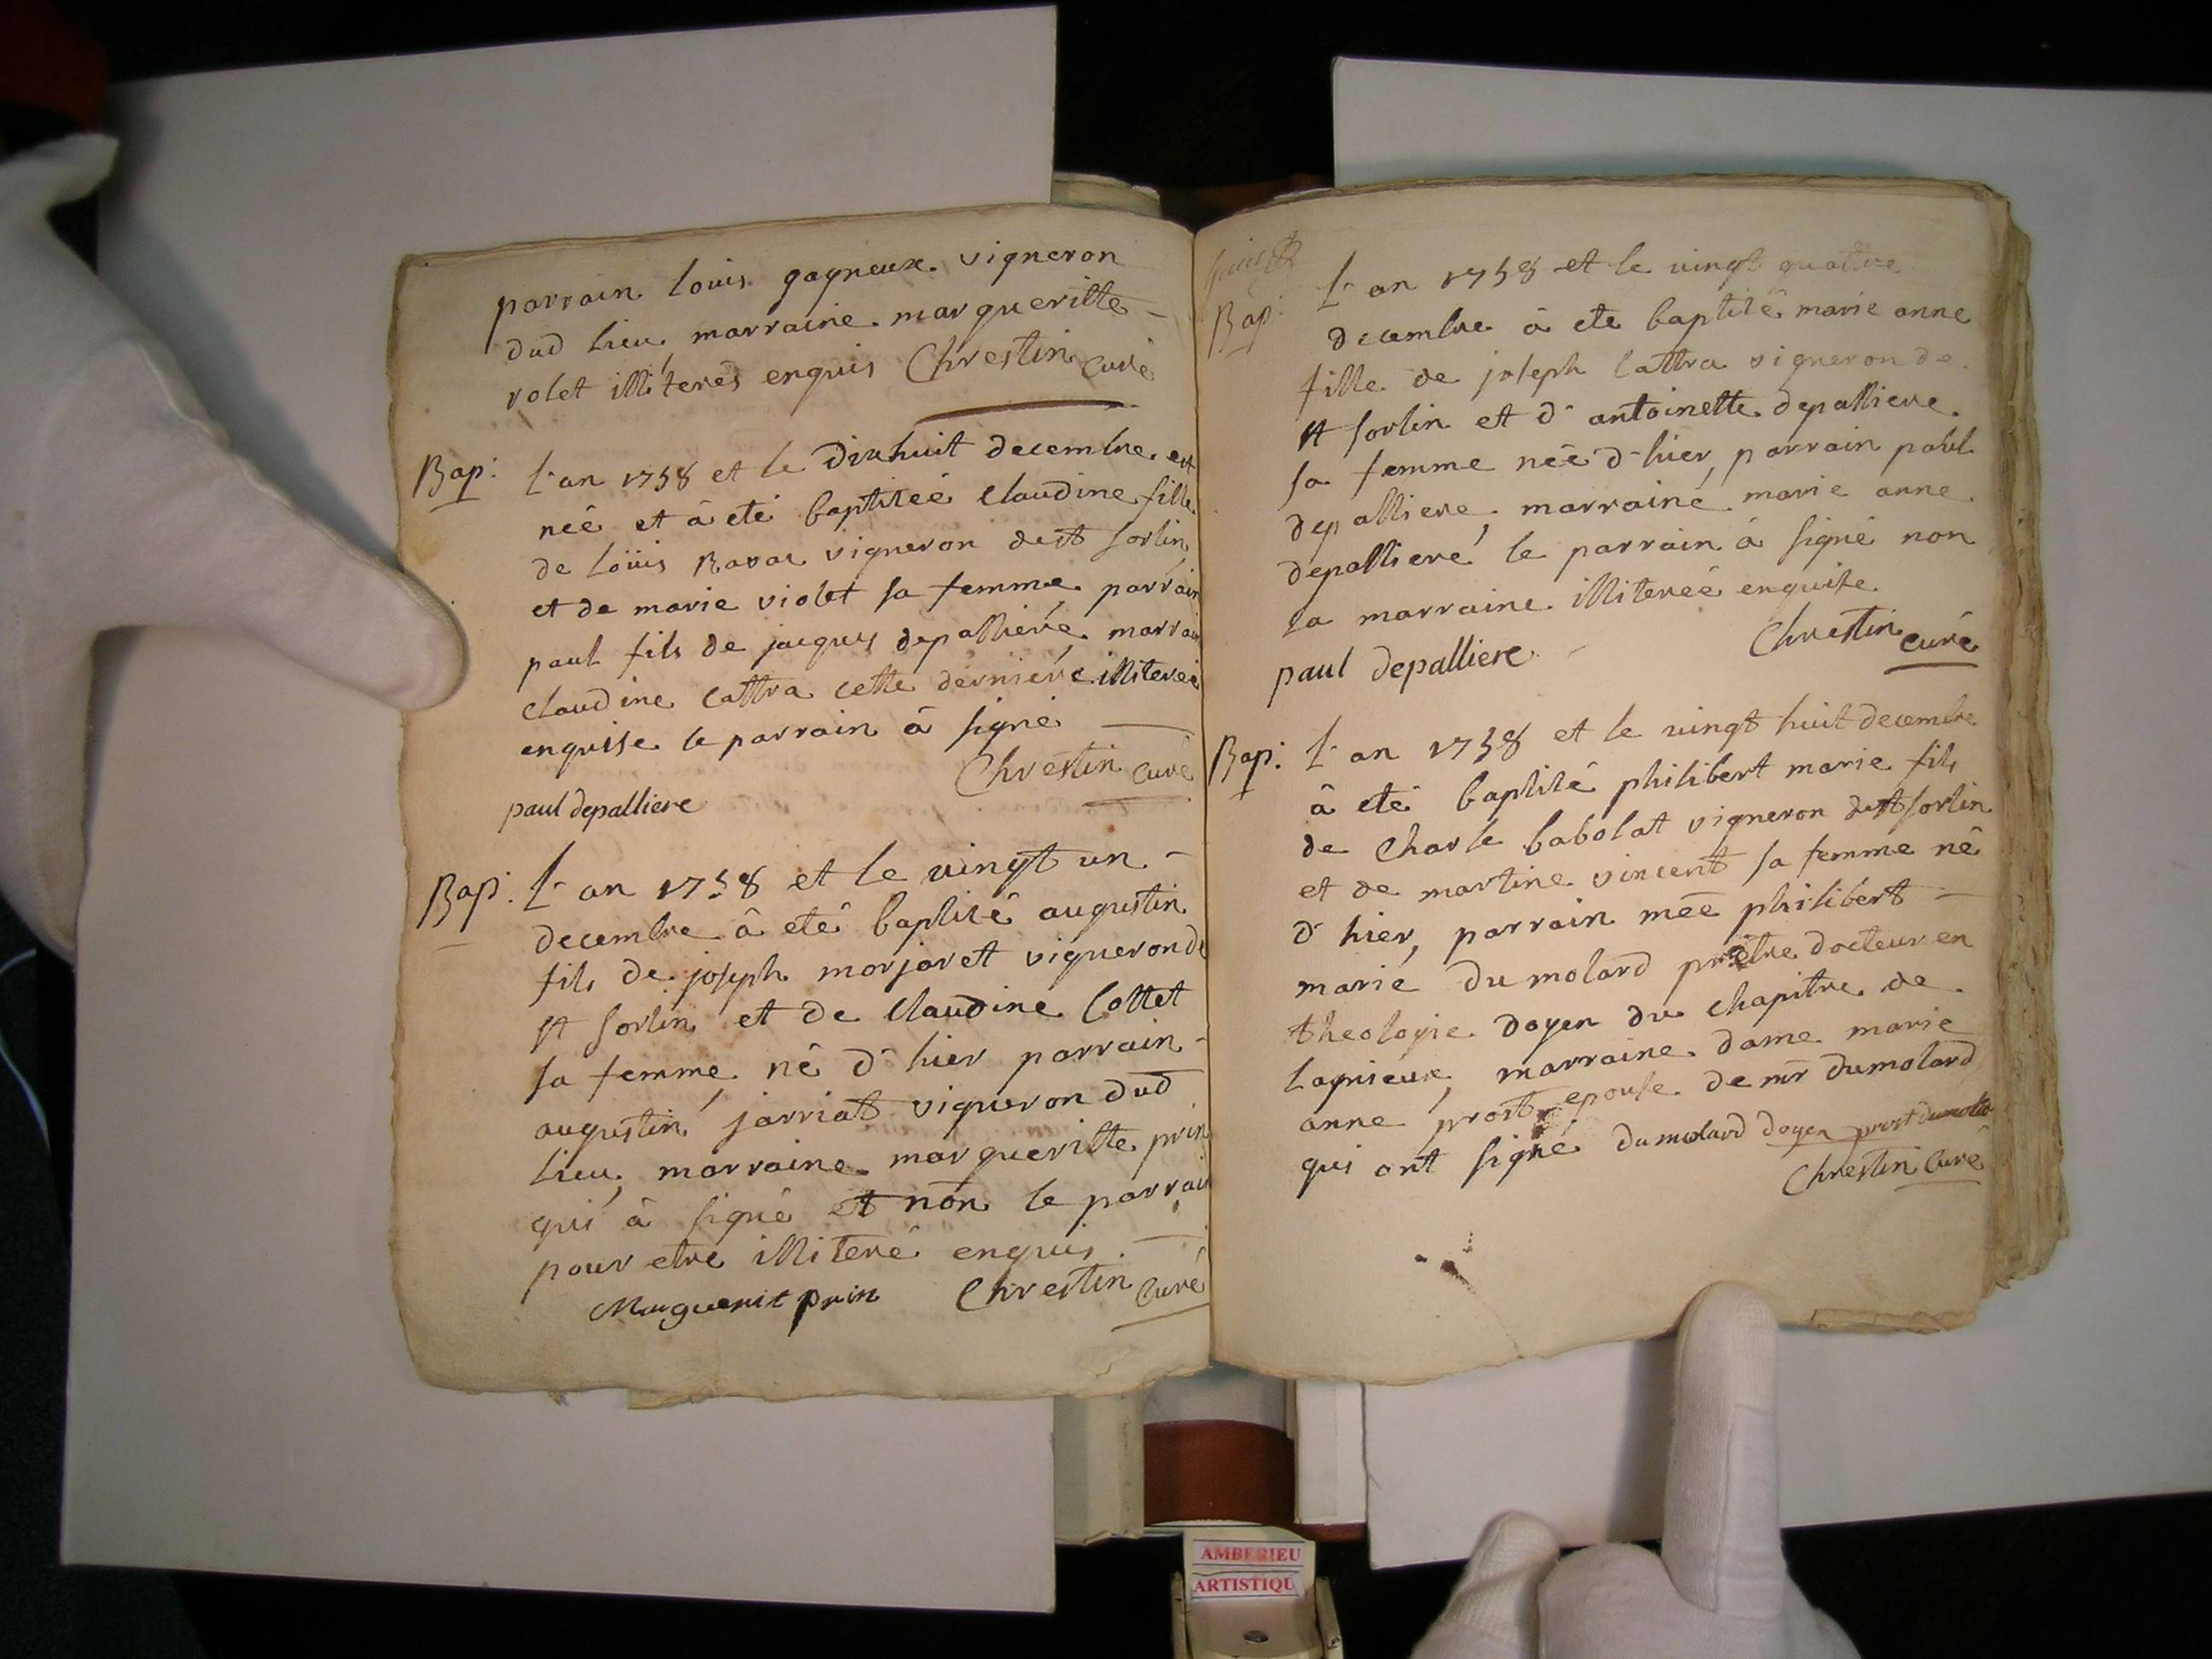 parrain louis gagneux vigneron
dud lieu marraine margueritte
volet illiterés enquis Chrestin curé
Bap: l'an 1758 et le dixhuit decembre est
née et à eté baptisée claudine fille
de loüis Ravat vigneron de st sorlin
et de marie violet sa femme parrain
paul fils de jacques depalliere, marrain
claudine lattra cette derniere illiterée
enquise le parrain à signé
Chrestin curé
paul depalliere
Bap: l'an 1758 et le vingt un
decembre à eté baptisé augustin
fils de joseph marjaret vigneron de
st sorlin et de claudine Cottet
sa femme, né d'hier parrain
augustin jarriat vigneron dud
lieu, marraine margueritte prin
qui à signé et non le parrain
pour etre illiteré enquis
Marguerit prin Chrestin curé
Bap: l'an 1758 et le vingt quattre
decembre à eté baptisé marie anne
fille de joseph lattra vigneron de
st sorlin et d'antoinette depalliere
sa femme née d'hier, parrain paul
depalliere, marraine marie anne
depalliere, le parrain à signé non
la marraine illiterée enquise
Chrestin curé
paul depalliere
Bap: l'an 1758 et le vingt huit decembre
à eté baptisé philibert marie fils
de Charle babolat vigneron de st sorlin
et de martine vincent sa femme né
d'hier, parrain mre philibert
marie dumolard prêtre docteur en
theologie doyen du chapitre de
lagnieux, marraine dame marie
anne prost epouse de mr dumolard
qui ont signé dumolard doyen prost dumolard
Chrestin curé
AMBERIEU
ARTISTIQU